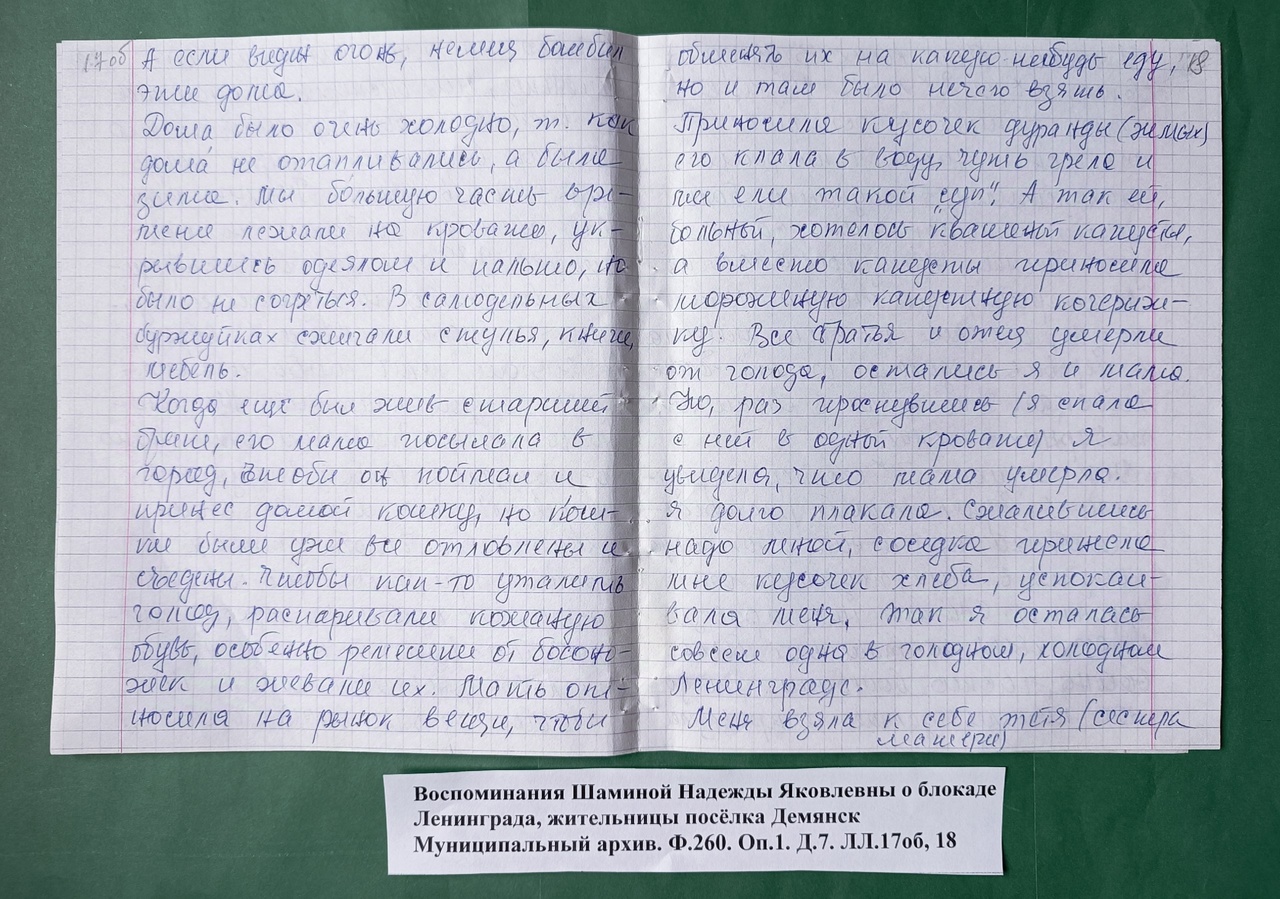 17об
А если видн огонь, немец бомбил
эти дома.
Дома было очень холодно, т. как
дома не отапливались, а была
зима. Мы большую часть вре-
мени лежали на кровати, ук-
рывшись одеялом и пальто, но
было не согреться. В самодельных
буржуйках сжигали стулья, книги,
мебель.
Когда ещё был жив старший
брат, его мама посылала в
город, чтоби он поймал и
принес домой кошку, но кош-
ки были уже все отловлены и
съедены. Чтобы как-то утолить
голод, распаривали кожаную
обувь, особенно ремешки от босоно-
жек и жевали их. Мать от-
носила на рынок вещи, чтобы
18
обменять их на какую-нибудь еду,
но и там было нечего взять.
Приносила кусочек дуранды (жмых)
его клала в воду, чуть грела и
мы ели такой "суп". А так ей,
больной, хотелось квашеной капусты,
а вместо капусты приносила
мороженую капустную кочерыж-
ку. Все братья и отец умерли
от голода, остались я и мама.
Но, раз проснувшись (я спала
с ней в одной кровати) я
увидела, что мама умерла.
Я долго плакала. Сжалившись
надо мной, соседка принесла
мне кусочек хлеба, успокаи-
вала меня. Так я осталась
совсем одна в голодном, холодном
Ленинграде.
Меня взяла к себе тётя (сестра
матери)
Воспоминания Шаминой Надежды Яковлевны о блокаде
Ленинграда, жительницы посёлка Демянск
Муниципальный архив. Ф.260. Оп.1. Д.7. ЛЛ.17об, 18